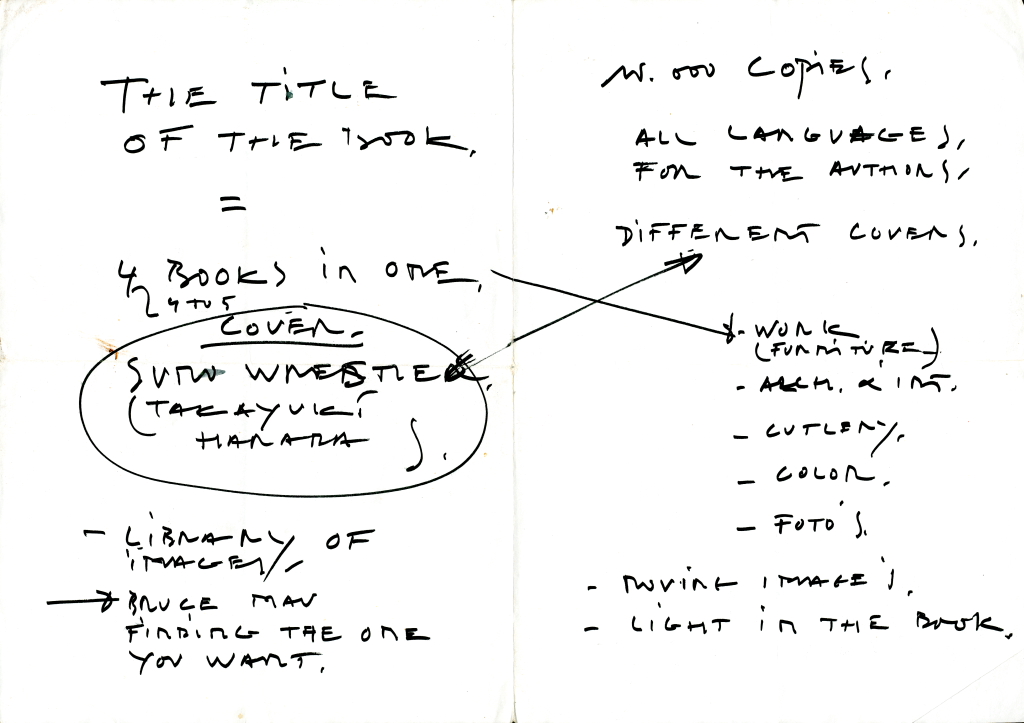 THE TITLE
OF THE BOOK.
=
4 BOOKS in ONE.
4 TO 5
COVER.
SUMO WRESTLER.
(TAKAYUKI
HARARA
).
- LIBRARY OF
IMAGES/.
→ BRUCE MAU
FINDING THE ONE
YOU WANT.
000 COPIES.
ALL LANGUAGES,
FOR THE AUTHORS,
DIFFERENT COVERS.
- WORK
(FURNITURE)
- ARCH. & INT.
- CUTLERY.
- COLOR.
- FOTO'S.
- MOVING IMAGE'S.
- LIGHT in THE BOOK.